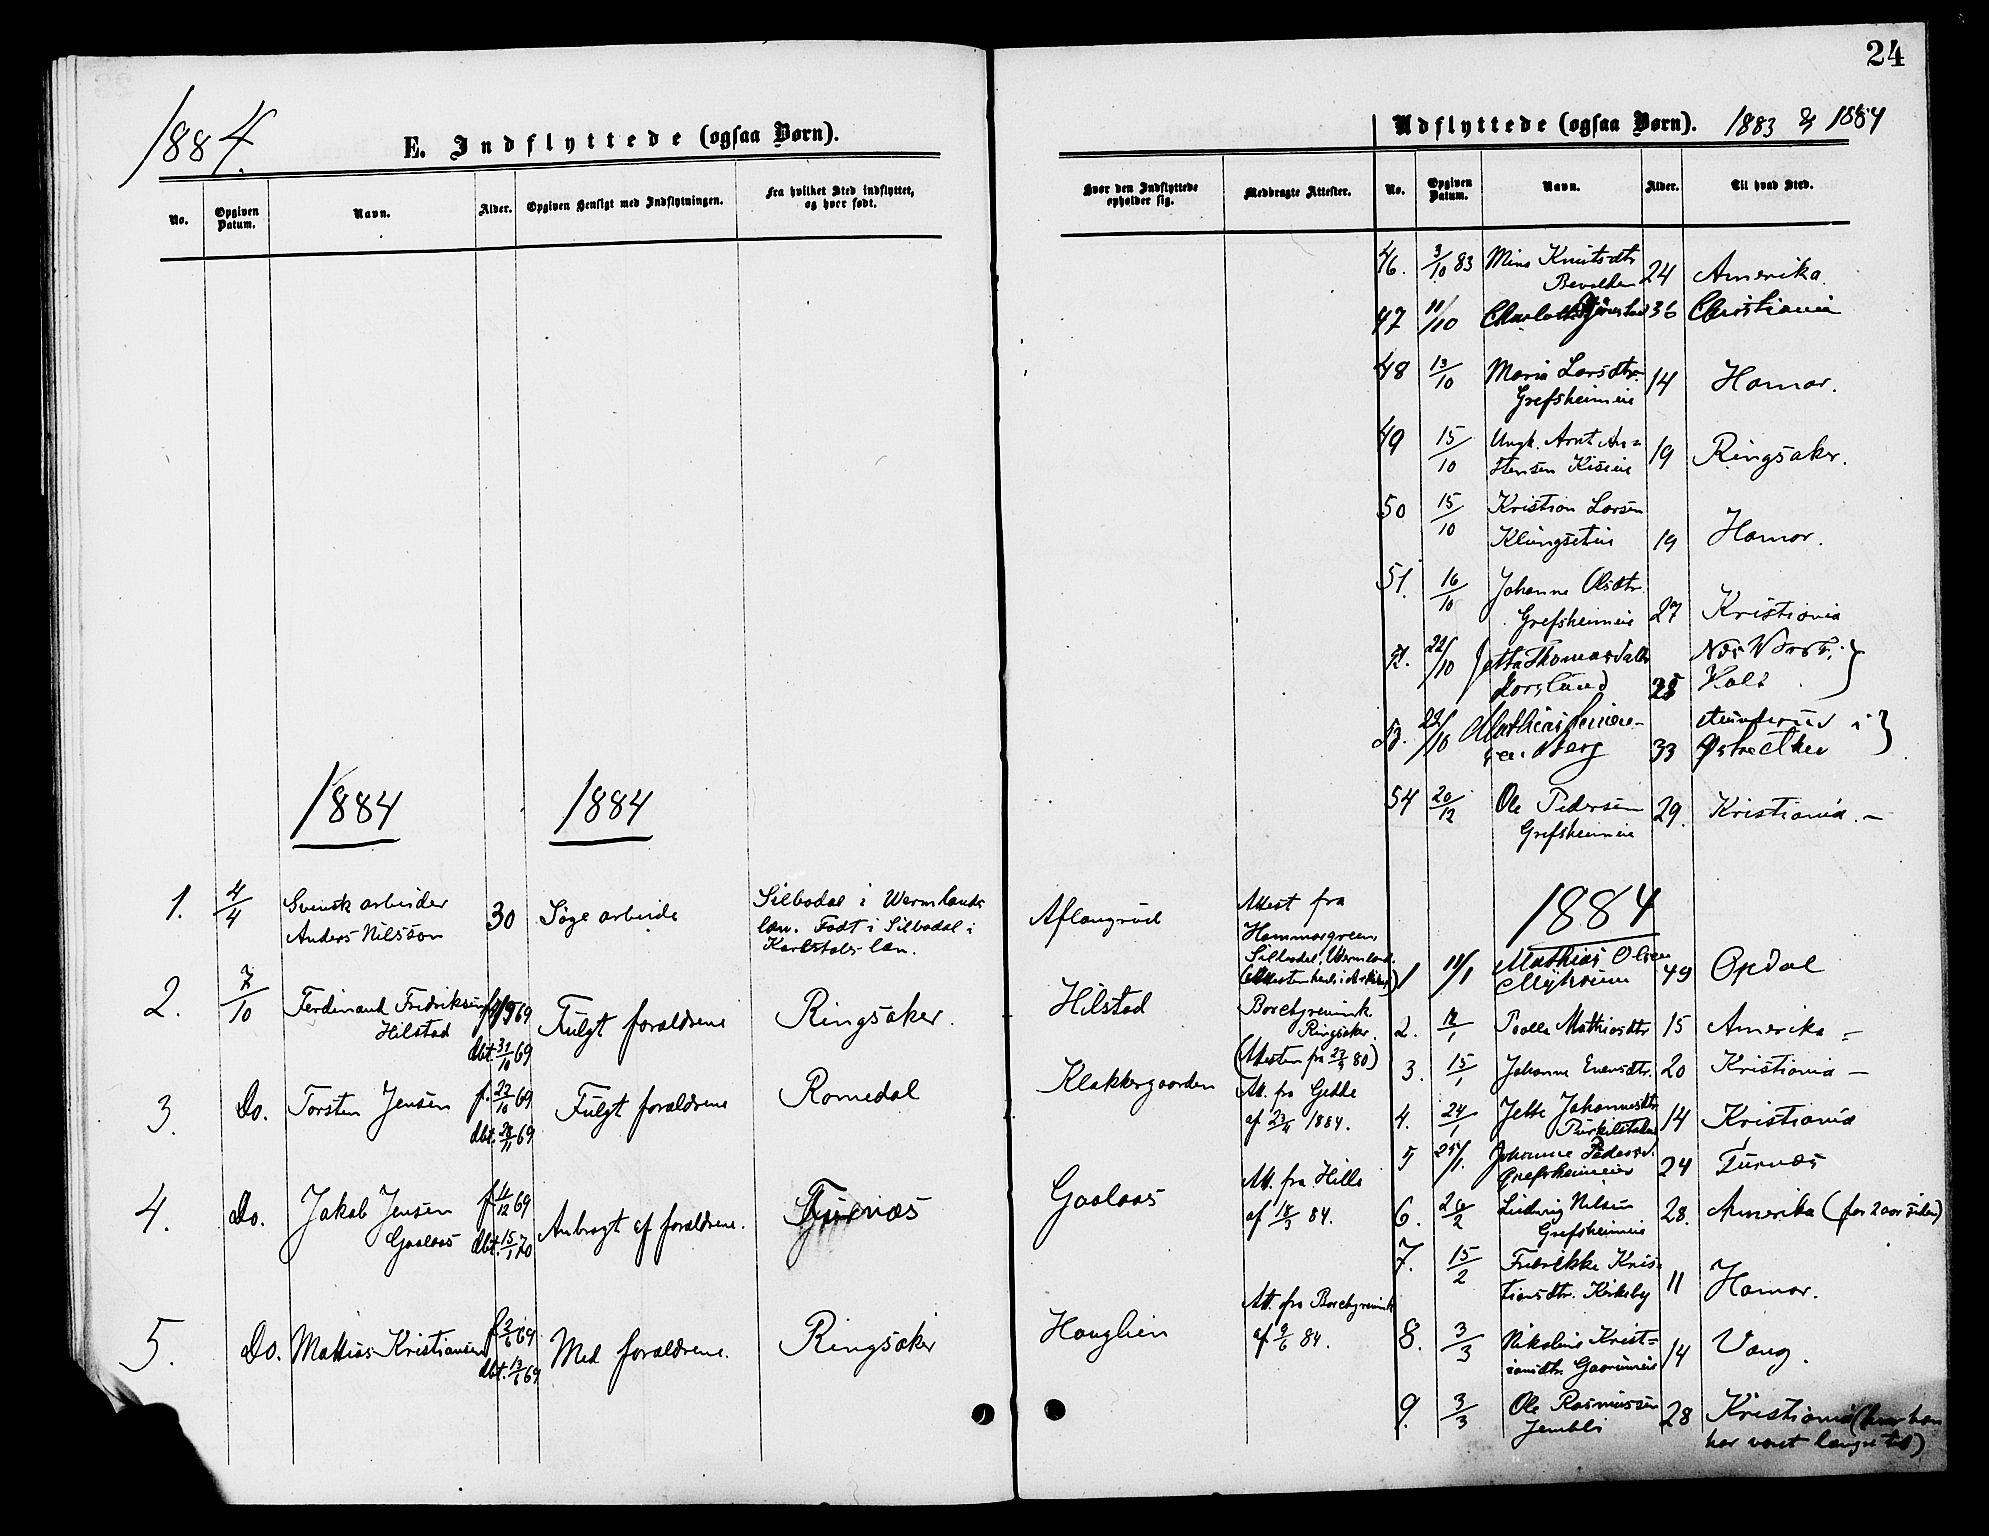 24
1884.
E. Indflyttede (ogsaa Børn).
No.
Opgiven Datum.
Navn.
Alder.
Opgiven Hensigt med Indflytningen.
Fra hvilket Sted indflyttet, og hvor født.
Hvor den Indflyttede opholder sig.
Medbragte Attester.
1884
1884
1. 4/4 Svensk arbeider 30 Søge arbeide Silbodal i Wermlands Aflangrud Attest fra
Anders Nilsson læn. Født i Silbodal i Hammargreen
Karlstads læn. Silbodal, Wermland.
2. 7/10 Ferdinand Fredriksen Fulgt forældrene Ringsaker. Hilstad Borchgrevink
Hilstad Ringsaker.
dbt. 31/10 69 (Attesten fra 80)
3. Do. Torsten Jensen f. 23/10 69 Fulgt forældrene Romedal Klakkergaarden Att. fra Gedde
dbt. 69 af 1884.
4. Do. Jakob Jensen f. 4/12 69 Anbragt af forældrene. Furnæs Gaalaas Att. fra Hille
Gaalaas dbt. 15/1 70 af 18/9 84.
5. Do. Mathias Kristiansen f. 2/6 69 Med forældrene. Ringsaker Hauglien Att. fra Borchgrevink
dbt. 13/6 69 af 9/6 84.
Udflyttede (ogsaa Børn). 1883 & 1884
No.
Opgiven Datum.
Navn.
Alder.
Til hvad Sted.
46. 3/10 83 Mina Knutsdtr 24 Amerika.
47 11/10 36 Christiania
48 13/10 Maria Larsdtr. 14 Hamar.
Grefsheimeie
49 15/10 Ungk. Arnt An= 19 Ringsaker.
stensen Kiseie
50 15/10 Kristian Larsen
Klungseteie 19 Hamar.
51. 16/10 Johanne Olsdtr.
Grefsheimeie 27 Kristiania
52. 22/10 Jetta Thomasdatter
28
53. 22/10
Berg 33
54 20/12 Ole Pedersen 29. Kristiania. -
Grefsheimeie
1884
1 11/1 Mathias Olsen
Myhreeie 49 Opdal
2. 12/1 Paalla Mathiasdtr 15 Amerika =
3. 15/1 Johanne Evensdtr. 20 Kristiania -
4. 24/1 Jette Johannesdtr. 14 Kristiania
5 25/1. Johanne Pedersd. 24 Furnæs
Grefsheimeie
6. 26/2 Ludvig Nilsen 28. Amerika (for 2 aar siden)
Grefsheimeie
7. 15/2 Fredrikke Kris=
tiansdtr. Kirkeby 11 Hamar.
8. 3/3 Nikoline Krist=
iansdtr. 14 Vang.
9. 3/3 Ole Rasmussen 28 Kristiania (hvor han
Jembli har været længre tid)